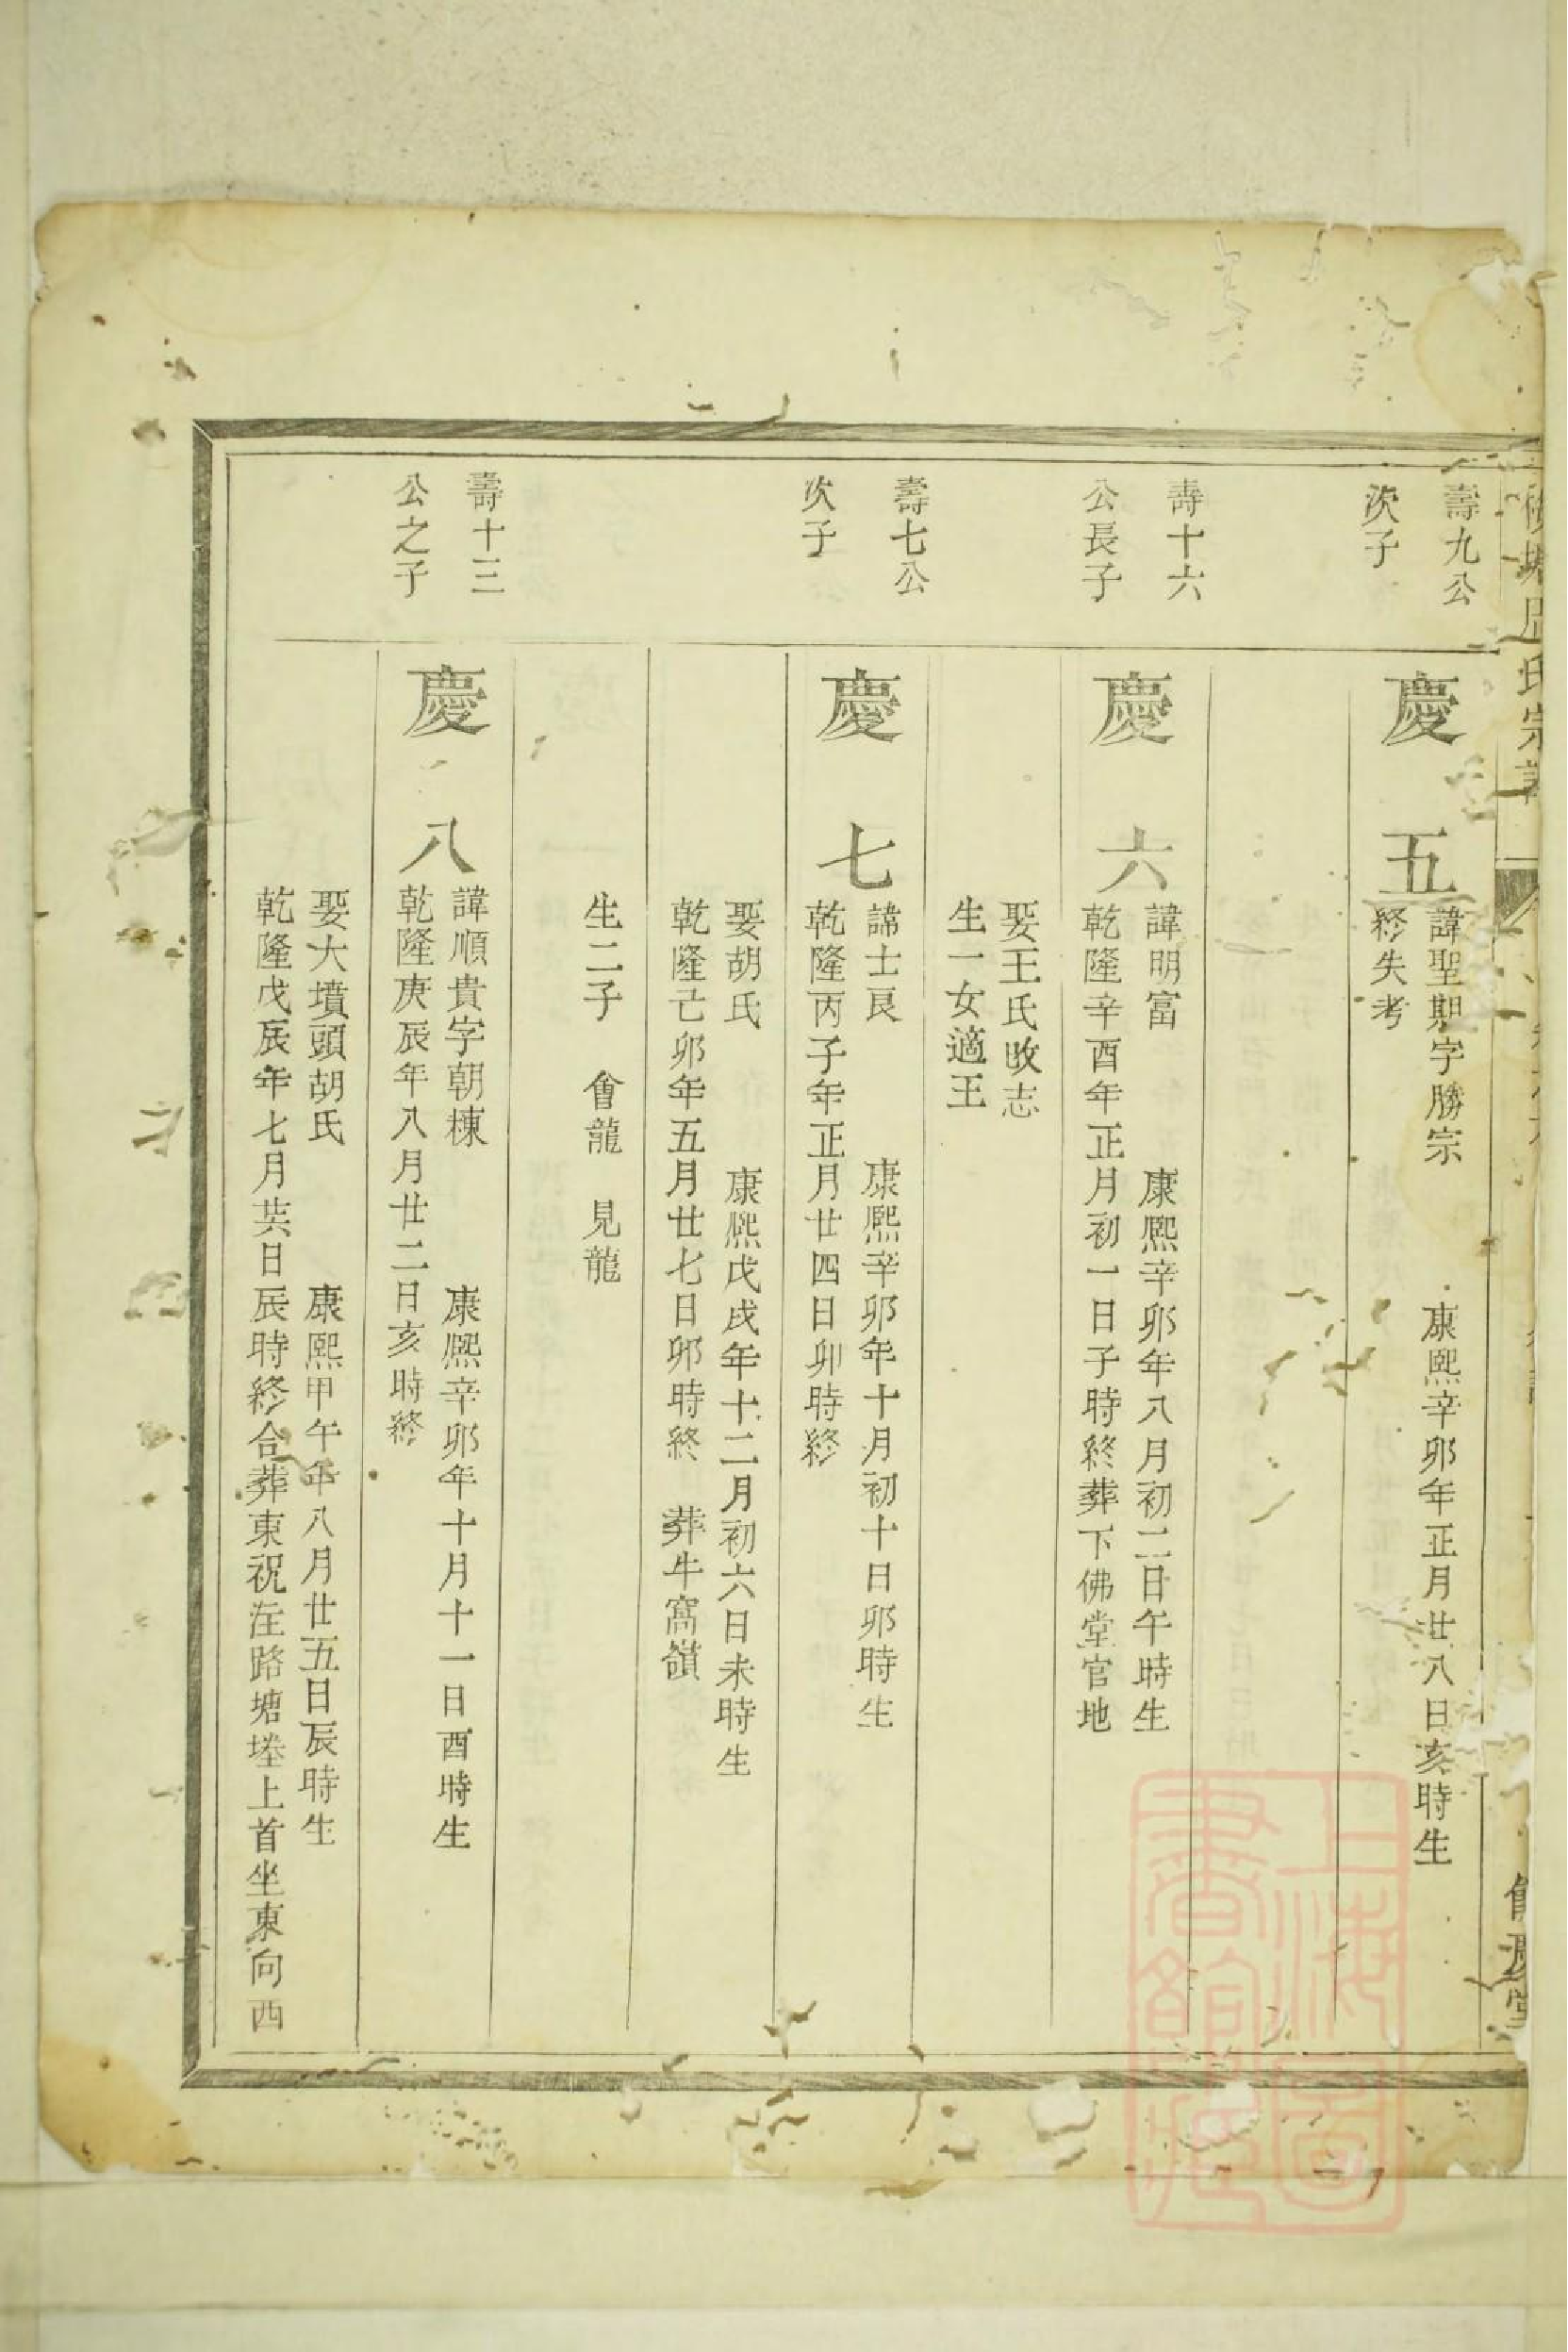 壽九公
次子
慶五
諱聖期字勝宗 康熙辛卯年正月廿八日亥時生
終失考
壽十六
公長子
慶六
諱明富 康熙辛卯年八月初二日午時生
乾隆辛酉年正月初一日子時終葬下佛堂官地
娶王氏改志
生一女適王
壽七公
次子
慶七
諱士良 康熙辛卯年十月初十日卯時生
乾隆丙子年正月廿四日卯時終
娶胡氏 康熙戊戌年十二月初六日未時生
乾隆己卯年五月廿七日卯時終 葬牛窩嶺
生二子 會龍 見龍
壽十三
公之子
慶八
諱順貴字朝棟 康熙辛卯年十月十一日酉時生
乾隆庚辰年八月廿二日亥時終
娶大墳頭胡氏 康熙甲午年八月廿五日辰時生
乾隆戊辰年七月廿六日辰時終合葬東祝路塘塍上首坐東向西
上海圖
書館藏